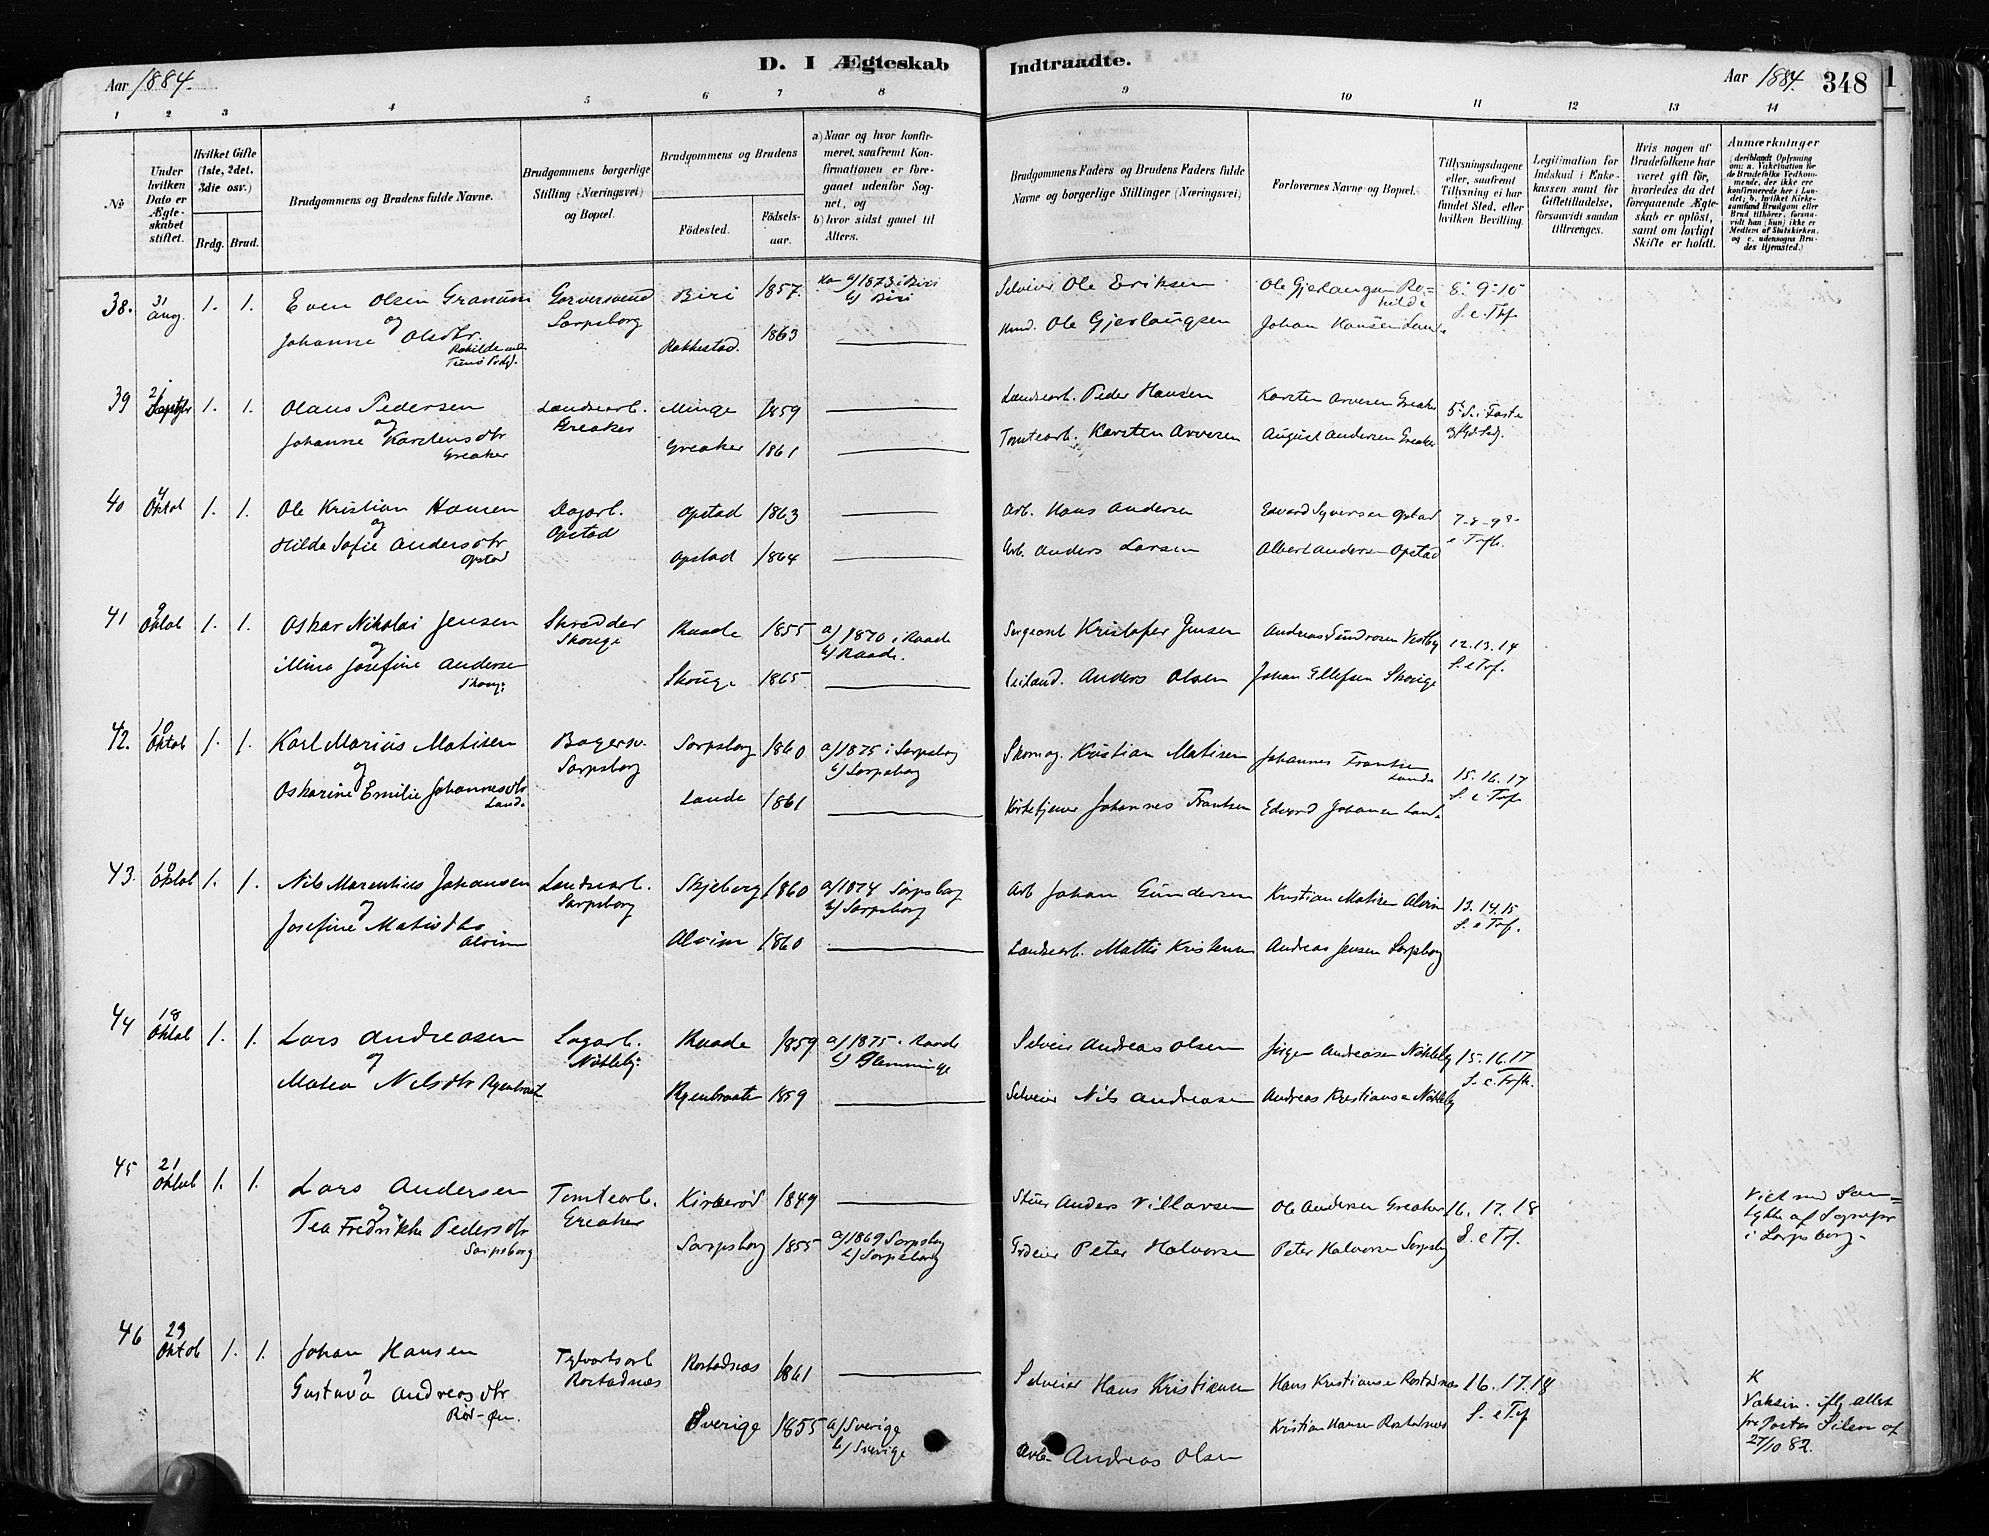 Aar 1884.
D. I Ægteskab Indtraadte.
Aar 1884. 348
1 2 3 4 5 6 7 8 9 10 11 12 13 14
No
Under hvilken Dato er Ægteskabet stiftet.
Hvilket Gifte (1ste, 2det. 3die osv.)
Brdg. Brud.
Brudgommens og Brudens fulde Navne.
Brudgommens borgerlige Stilling (Næringsvei) og Bopæl.
Brudgommens og Brudens
Fødested.
Fødselsaar.
a) Naar og hvor konfirmeret, saafremt Konfirmationen er foregaaet udenfor Sognet, og
b) hvor sidst gaaet til Alters.
Brudgommens Faders og Brudens Faders fulde Navne og borgerlige Stillinger (Næringsvei)
Forlovernes Navne og Bopæl.
Tillysningsdagene eller, saafremt Tillysning ei har fundet Sted, efter hvilken Bevilling.
Legitimation for Indskud i Enkekassen samt for Giftetilladelse, forsaavidt saadan tiltrænges.
Hvis nogen af Brudefolkene har været gift før, hvorledes da det foregaaende Ægteskab er opløst, samt om lovligt Skifte er holdt.
Anmærkninger
(deriblandt Oplysning om: a. Vakcination for de Brudefolks Vedkommende, der ikke ere konfirmerede her i Landet; b. hvilket Kirkesamfund Brudgom eller Brud tilhører, forsaavidt han (hun) ikke er Medlem af Statskirken, og c. udensogns Brudes Hjemsted.)
38. 31 Aug. 1. 1. Even Olsen Granum Garversvend Sarpsborg Biri 1857. a/ 1873 i Biri b/ Biri Selveier Ole Eriksen 8. 9. 10 S. e. Trf.
og
Johanne Olsdtr. Rakkestad. 1863 Ole Gjerlaugsen Johan Hansen Lande
39 21 1. 1. Olaus Pedersen Landsearb. Greaker Minge 1859 Landsearb. Peder Hansen Karsten Arvesen Greaker
og
Johanne Karstensdtr Greaker Greaker 1861 Tomtearb. Karsten Arvesen August Andersen Greaker
40 4 Oktob 1. 1. Ole Kristian Hansen Dagarb. Opstad Opstad 1863 Arb. Hans Andersen Edvard Syversen Opstad 7-8-9
og
Hilda Sofie Andersdtr Opstad Opstad 1864 Arb. Anders Larsen Albert Andersen Opstad
41 9 Oktob 1. 1. Oskar Nikolai Jensen Skrædder Skouge Raade 1855 a/ 1870 i Raade b/ Raade. Sergeant Kristofer Jensen 12. 13. 14 S. e Trf.
og
Mina Josefine Anderse Skouge 1865 Leiland. Anders Olsen Johan Ellefsen Skouge
42. 10 Oktob 1. 1. Karl Marius Matisen Bagersv. Sarpsborg Sarpsborg 1860 a/ 1875 i Sarpsborg b/ Sarpsborg Skomag. Kristian Matisen Johannes Frantsen Lande 15. 16. 17 S. e. Trf.
og
Oskarine Emilie Johannesdtr Lande Lande 1861 Kirketjener Johannes Frantsen Edvard Johansen Lande
43. 10 Oktob 1. 1. Nils Marentius Johansen Landsearb. Sarpsborg Skjeberg 1860 a/ 1874 Sarpsborg b/ Sarpsborg Arb Johan Gundersen Kristian Matisen Alvim 13. 14. 15 S. e Trf.
og
Josefine Alvim Alvim 1860 Landsearb. Mattis Kristensen Andreas Jensen Sarpsborg
44 18 Oktob 1. 1. Lars Andreasen Nokleby Raade 1859 a/ 1875 i Raade b/ Glemminge Selveier Andreas Olsen Jørgen Andreasen Nokleby 15. 16. 17 S. e. Trf.
og
Matea Nilsdtr 1859 Selveier Nils Andreasen Andreas Kristiansen Nokleby
45 21 Oktob 1. 1. Lars Andersen Tomtearb. Greaker Kirkerød 1849 Anders Villarsen Ole Andersen Greaker 16. 17. 18 S. e Trf. Viet med Samtykke af Sognepr i Sarpsborg.
og
Tea Fredrikke Pedersdtr Sarpsborg Sarpsborg 1855 a/ 1869 Sarpsborg b/ Sarpsborg Peter Halvorsen Peter Halvorsen Sarpsborg
46 29 Oktob 1. 1. Johan Hansen Rostadnæs Rostadnæs 1861 Selveier Hans Kristiansen Hans Kristiansen Rostadnæs 16. 17. 18 S. e Trf
og
Gustava Andreasdtr Sverige 1855 a/ Sverige b/ Sverige Arb. Andreas Olsen Kristian Hansen Rostadnæs 27/10 82.